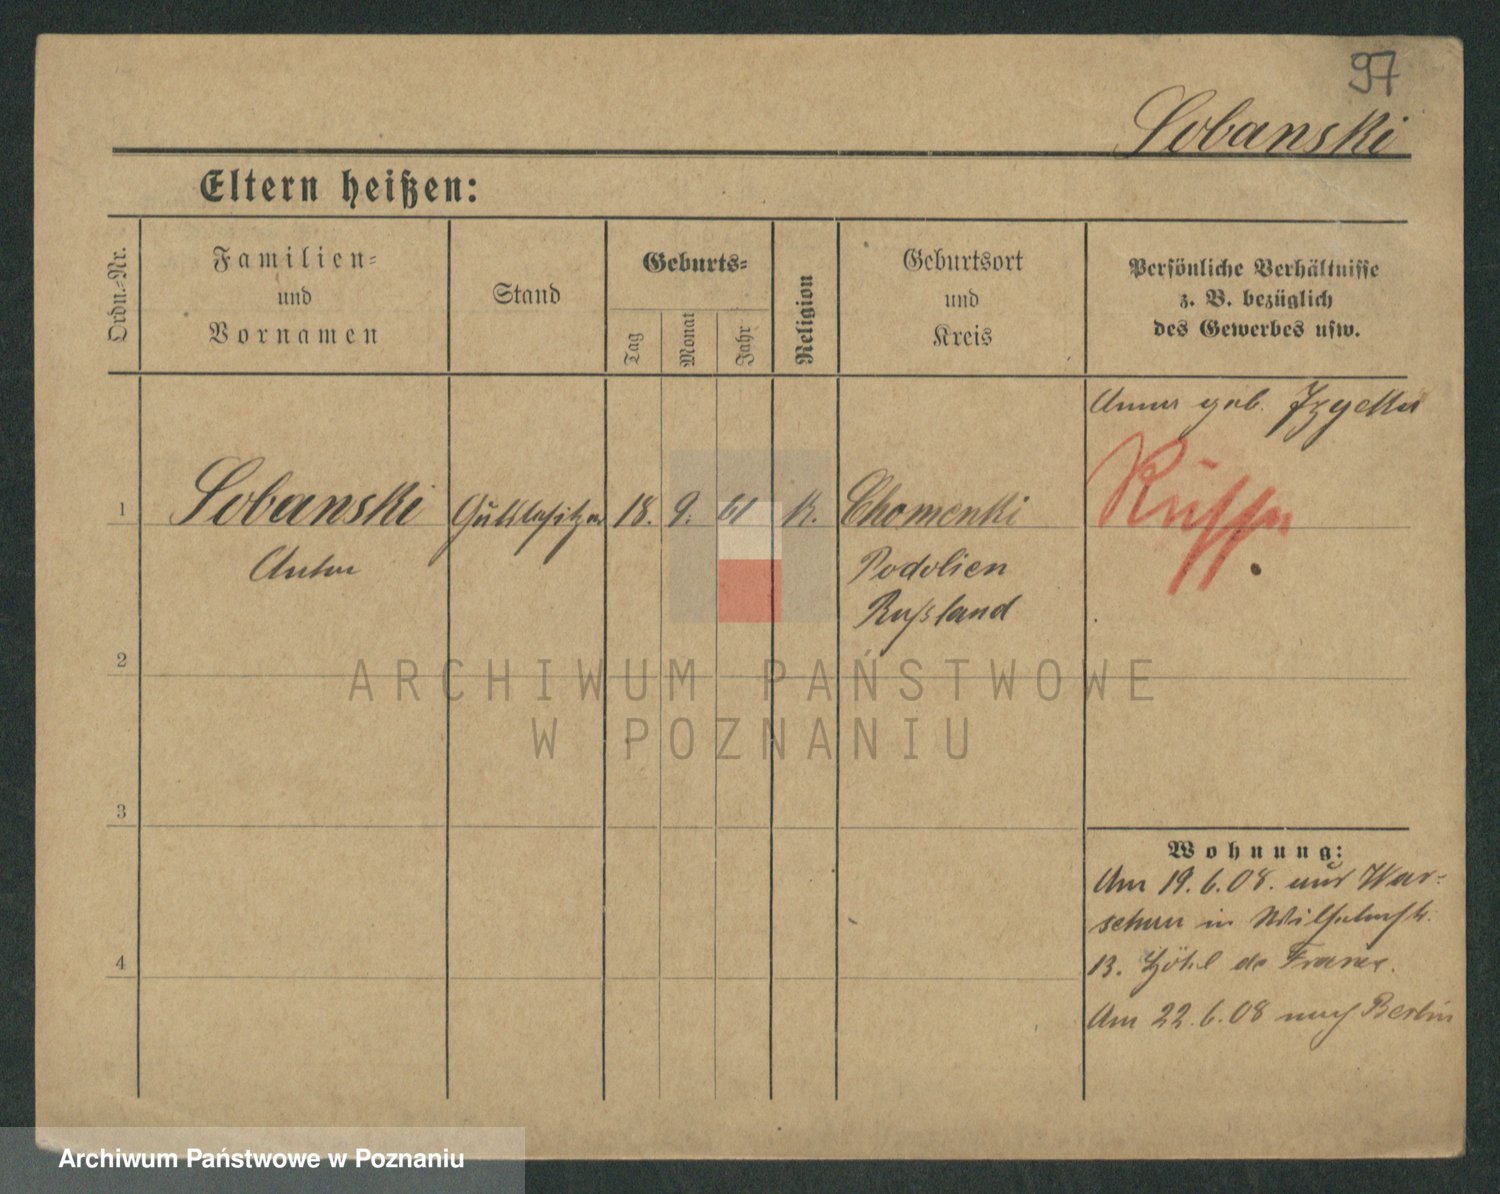 97
Lobanski
Eltern heißen:
Ordn.-Nr.
Familien-
und
Vornamen
Stand
Geburts-
Tag
Monat
Jahr
Religion
Geburtsort
und
Kreis
Persönliche Verhältnisse
z. B. bezüglich
des Gewerbes usw.
Anna geb.
1
Lobanski
Gutsbesitzer
18.
9.
61
K.
Chomenki
Russe
Anton
Podolien
Russland
2
ARCHIWUM PAŃSTWOWE
W POZNANIU
3
Wohnung:
Am 19.6.08. aus War-
schau in Wilhelmstr.
13. Hôtel de France.
4
Am 22.6.08 nach Berlin
Archiwum Państwowe w Poznaniu